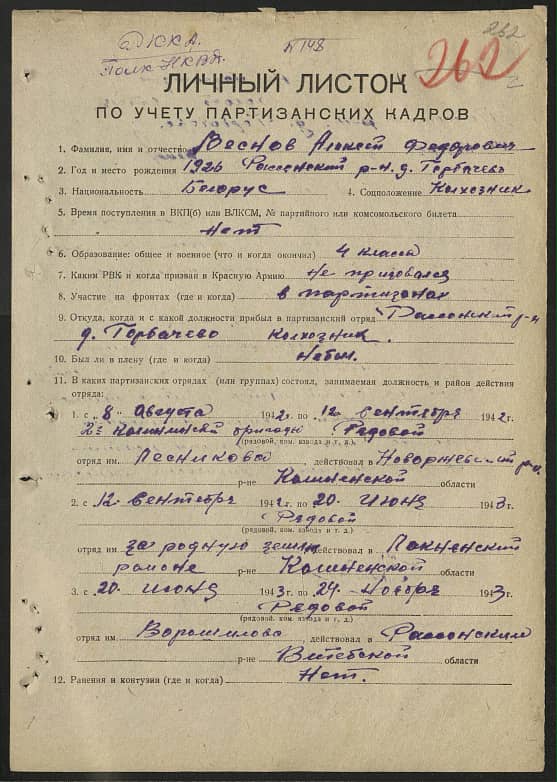 262
ДККА.
Полк НКВД.
262
ЛИЧНЫЙ ЛИСТОК
ПО УЧЕТУ ПАРТИЗАНСКИХ КАДРОВ
1. Фамилия, имя и отчество Веснов Алексей Федорович
2. Год и место рождения 1926 Россонский р-н. д. Горбачево
3. Национальность Белорус 4. Соцположение Колхозник
5. Время поступления в ВКП(б) или ВЛКСМ, № партийного или комсомольского билета
Нет
6. Образование: общее и военное (что и когда окончил) 4 класса
7. Каким РВК и когда призван в Красную Армию Не призовался
8. Участие на фронтах (где и когда) в партизонах
9. Откуда, когда и с какой должности прибыл в партизанский отряд Россонский р-н
д. Горбачево колхозник.
10. Был ли в плену (где и когда) Небыл.
11. В каких партизанских отрядах (или группах) состоял, занимаемая должность и район действия
отряда:
1. с „8“ Августа 1942г. по 12 сентября 1942г.
2й Калининской бригады Рядовой
(рядовой, ком. взвода и т. д.)
отряд им. Лесникова действовал в Новоржевский р-н
р-не Калининской области
2. с 12 сентября 1942г. по 20. Июня 1943г.
Рядовой
(рядовой, ком. взвода и т. д.)
отряд им. за родную землю действовал в Локненский
районе р-не Калининской области
3. с 20. июня 1943г. по 24. Ноября 1943г.
(рядовой, ком. взвода и т. д.)
Рядовой
отряд им. Ворошилова, действовал в Россонским
р-не Витебской области
12. Ранения и контузии (где и когда) Нет.